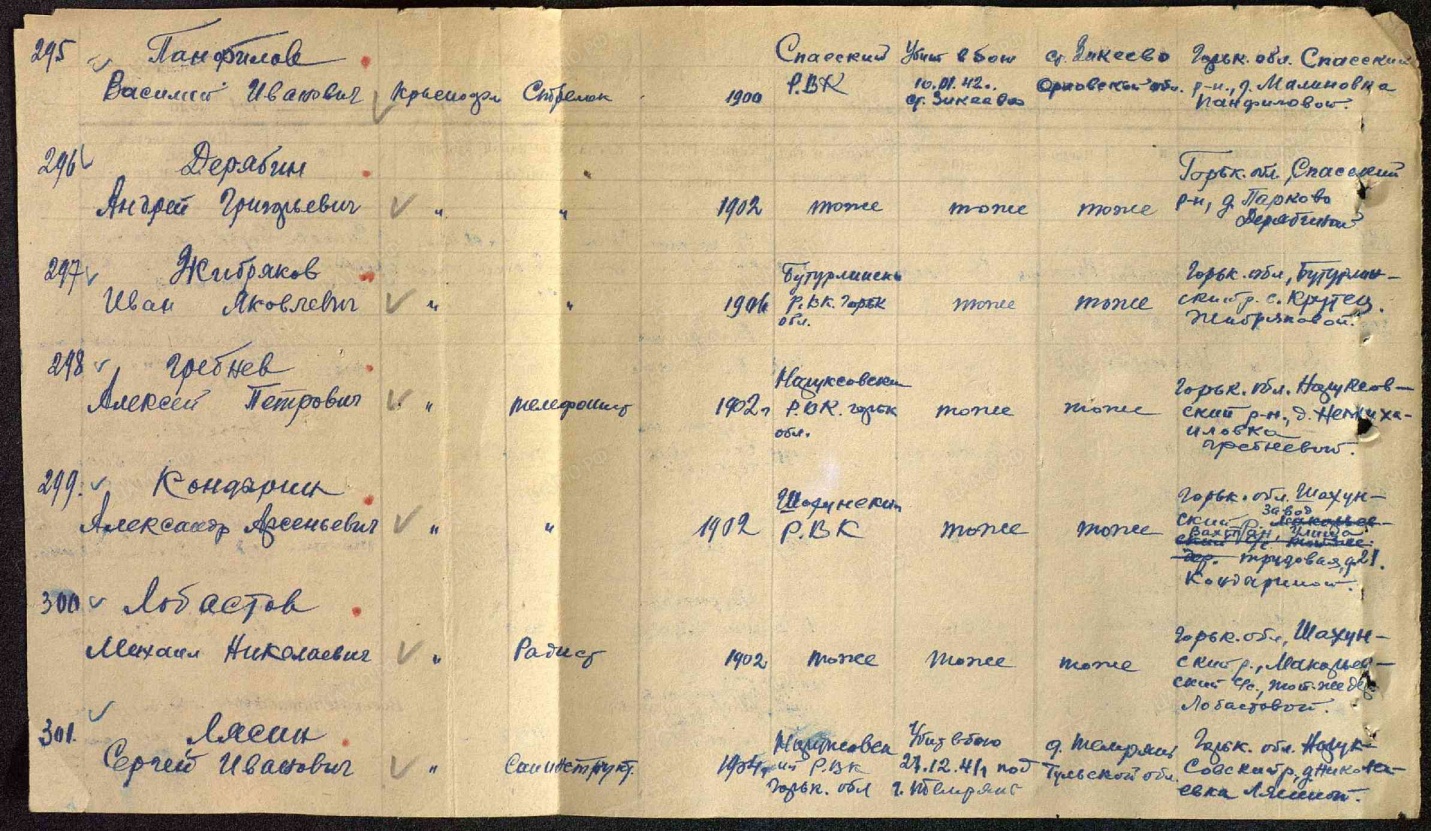 295 Панфилов
Василий Иванович Красноарм Стрелок 1900 Спасский Р.ВК Убит в бою 10.01.42г. ст. Зикеево ст. Зикеево Орловской обл. Горьк. обл. Спасский р-н, д. Малиновка Панфиловой.
296 Дерябин
Андрей Григорьевич " " 1902 тоже тоже тоже Горьк обл, Спасский р-н, д. Парково Дерябиной
297 Жибряков
Иван Яковлевич " " 1906 Бутурлинск Р.ВК. Горьк обл. тоже тоже Горьк. обл, Бутурлин-
ский р. с. Крутец.
Жибряковой.
298 Гребнев
Алексей Петрович " телефонист 1902г Р.ВК. Горьк обл. тоже тоже Горьк. обл.
ский р-н., д.
Гребневой.
299. Кондарин
Александр Арсеньевич " " 1902 Шахунский Р.ВК тоже тоже Горьк. обл. Шахун-
ский р. завод
Вахтан, улица
Трудовая, д 21.
Кондариной.
300 Лобастов
Михаил Николаевич " Радист 1902 тоже тоже тоже Горьк. обл, Шахун-
ский р., Макарьев-
ский с/с, той-же дер
Лобастовой.
301. Лясин
Сергей Иванович " санинструкт. Р.ВК Горьк. обл Убит в бою 27.12.41г под д. Тульской обл. Горьк. обл.
ский р, д Никола-
евка Лясиной.